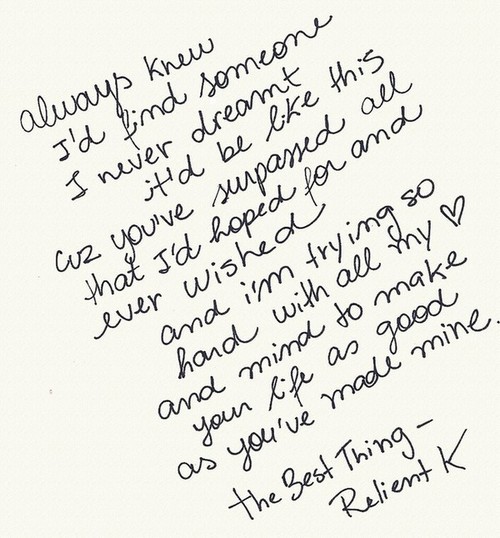 always knew
I'd find someone
I never dreamt
it'd be like this
cuz you've surpassed all
that I'd hoped for and
ever wished
and i'm trying so
hard with all my ♡
and mind to make
your life as good
as you've made mine.
the Best Thing –
Relient K